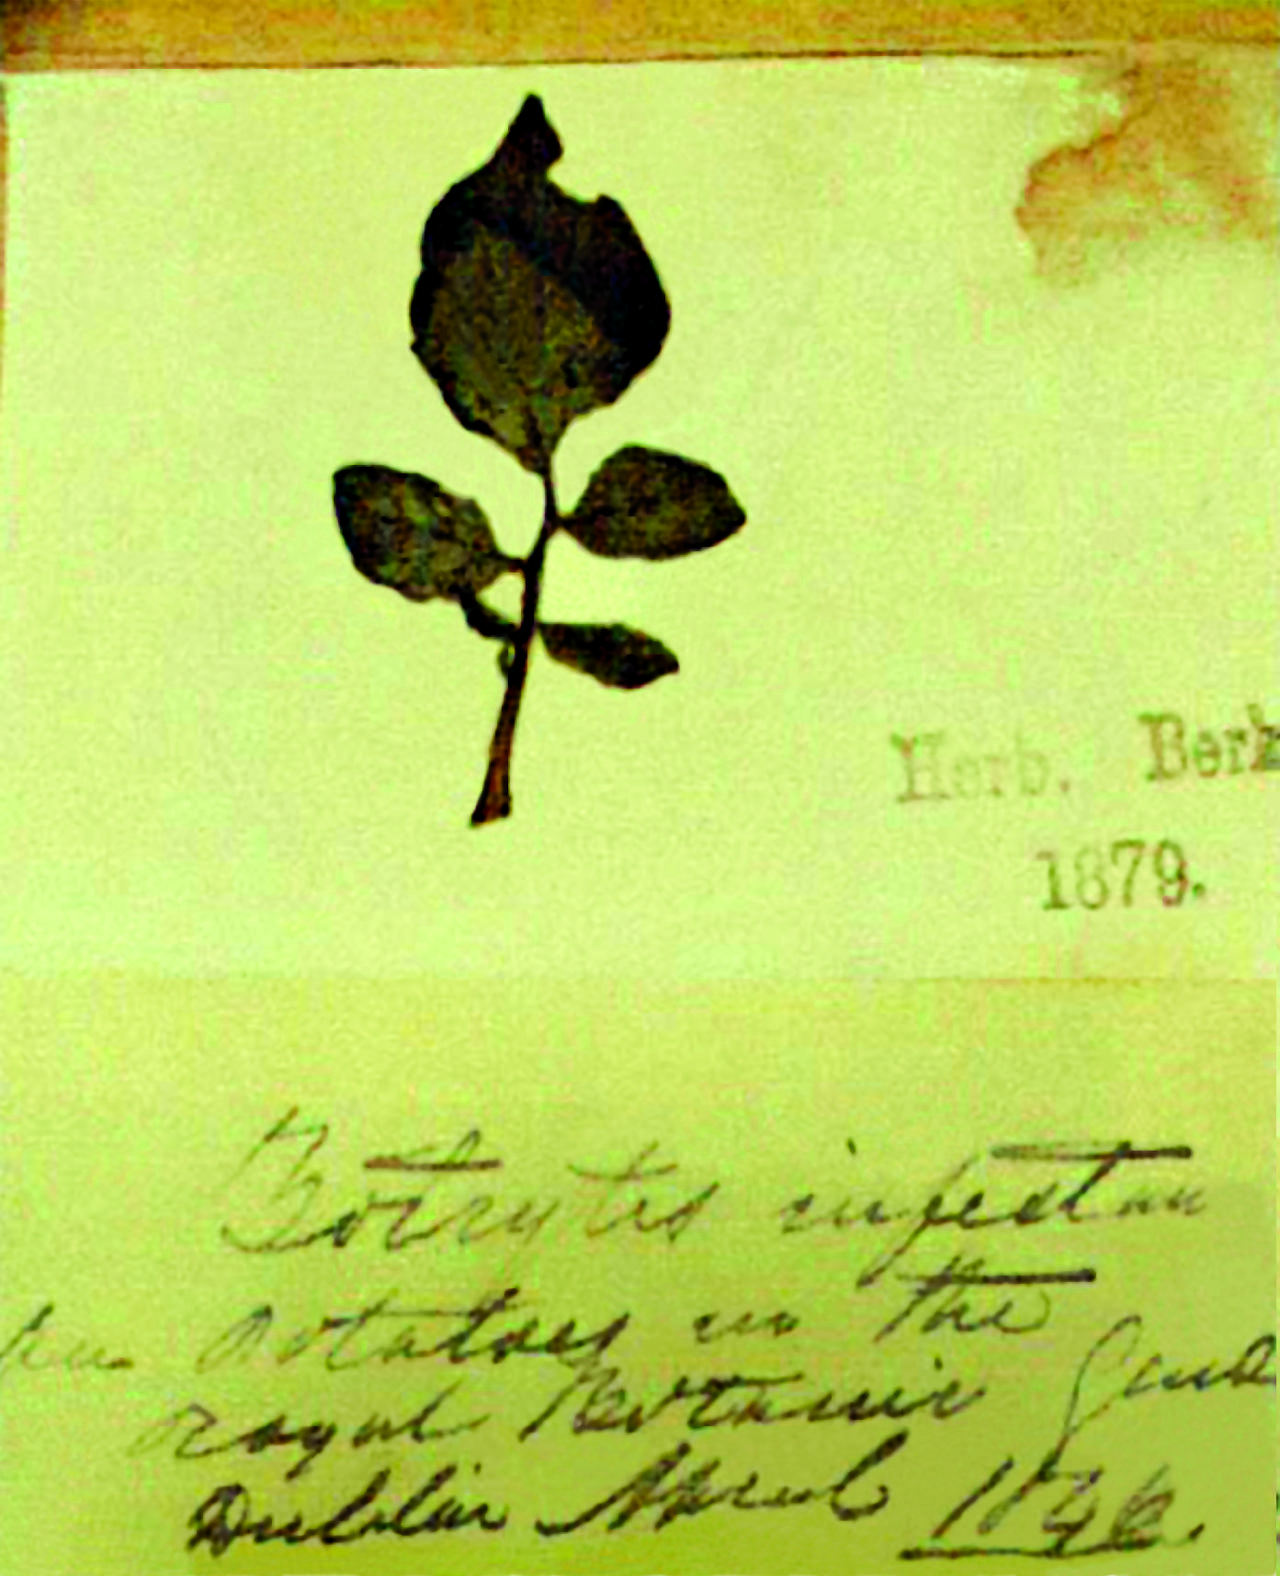 Herb. Berk
1879.
Botrytis infestan
on Potatoes in the
Royal Botanic Gard
Dublin April 1846.